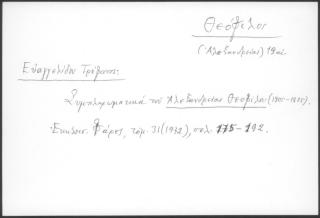 Θεόφιλος
(Ἀλεξανδρείας) 19αι.
Εὐαγγελίδου Τρύφωνος:
Συμπληρωματικὰ τοῦ Ἀλεξανδρείας Θεοφίλου (1805-1825).
Ἐκκλησ. Φάρος, τόμ. 31 (1932), σελ. 175-192.